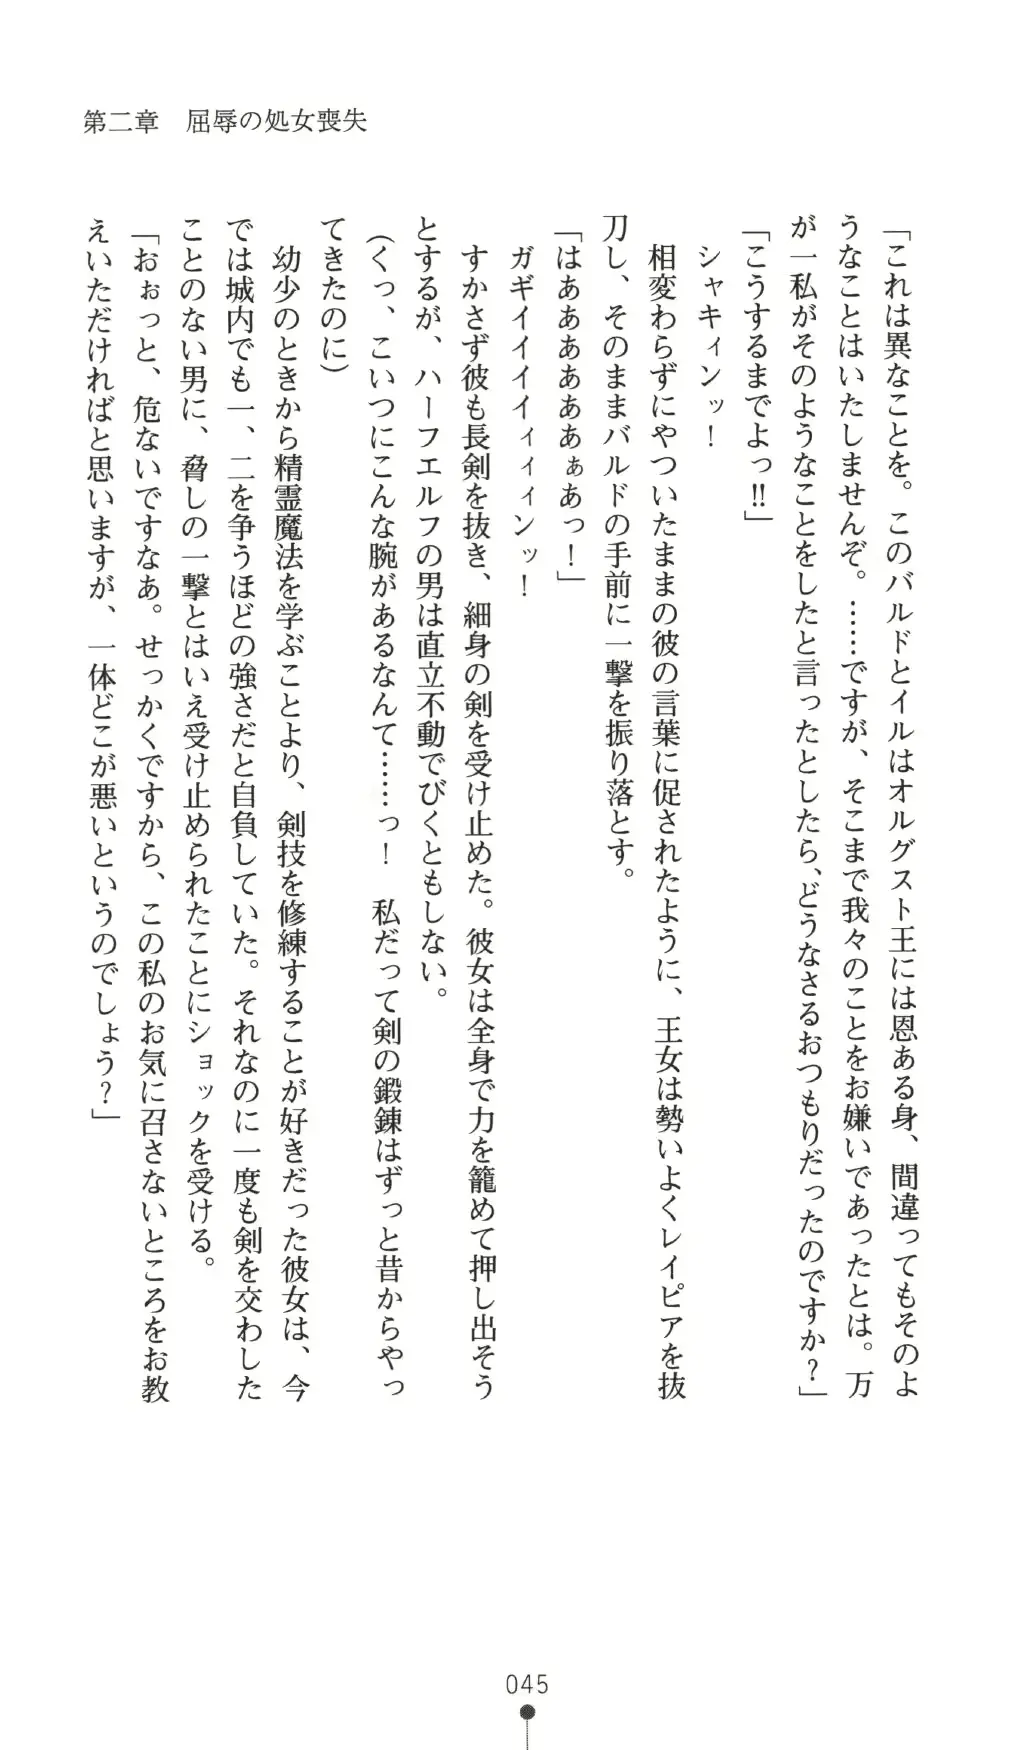 第二章　屈辱の処女喪失
「これは異なことを。このバルドとイルはオルグスト王には恩ある身、間違ってもそのよ
うなことはいたしませんぞ。……ですが、そこまで我々のことをお嫌いであったとは。万
が一私がそのようなことをしたと言ったとしたら、どうなさるおつもりだったのですか？」
「こうするまでよっ!!」
　シャキィンッ！
　相変わらずにやついたままの彼の言葉に促されたように、王女は勢いよくレイピアを抜
刀し、そのままバルドの手前に一撃を振り落とす。
「はああああああぁあっ！」
　ガギイイイイィィィンッ！
　すかさず彼も長剣を抜き、細身の剣を受け止めた。彼女は全身で力を籠めて押し出そう
とするが、ハーフエルフの男は直立不動でびくともしない。
（くっ、こいつにこんな腕があるなんて……っ！　私だって剣の鍛錬はずっと昔からやっ
てきたのに）
　幼少のときから精霊魔法を学ぶことより、剣技を修練することが好きだった彼女は、今
では城内でも一、二を争うほどの強さだと自負していた。それなのに一度も剣を交わした
ことのない男に、脅しの一撃とはいえ受け止められたことにショックを受ける。
「おぉっと、危ないですなあ。せっかくですから、この私のお気に召さないところをお教
えいただければと思いますが、一体どこが悪いというのでしょう？」
045